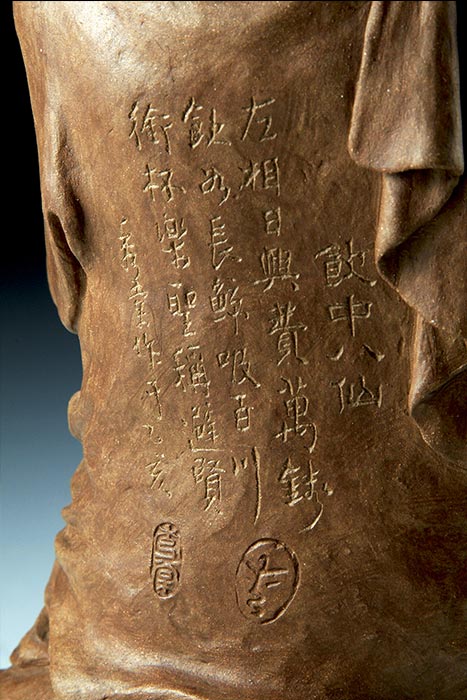 飲中八仙
左相日興費萬錢
飲如長鯨吸百川
銜杯樂聖稱避賢
作于乙亥